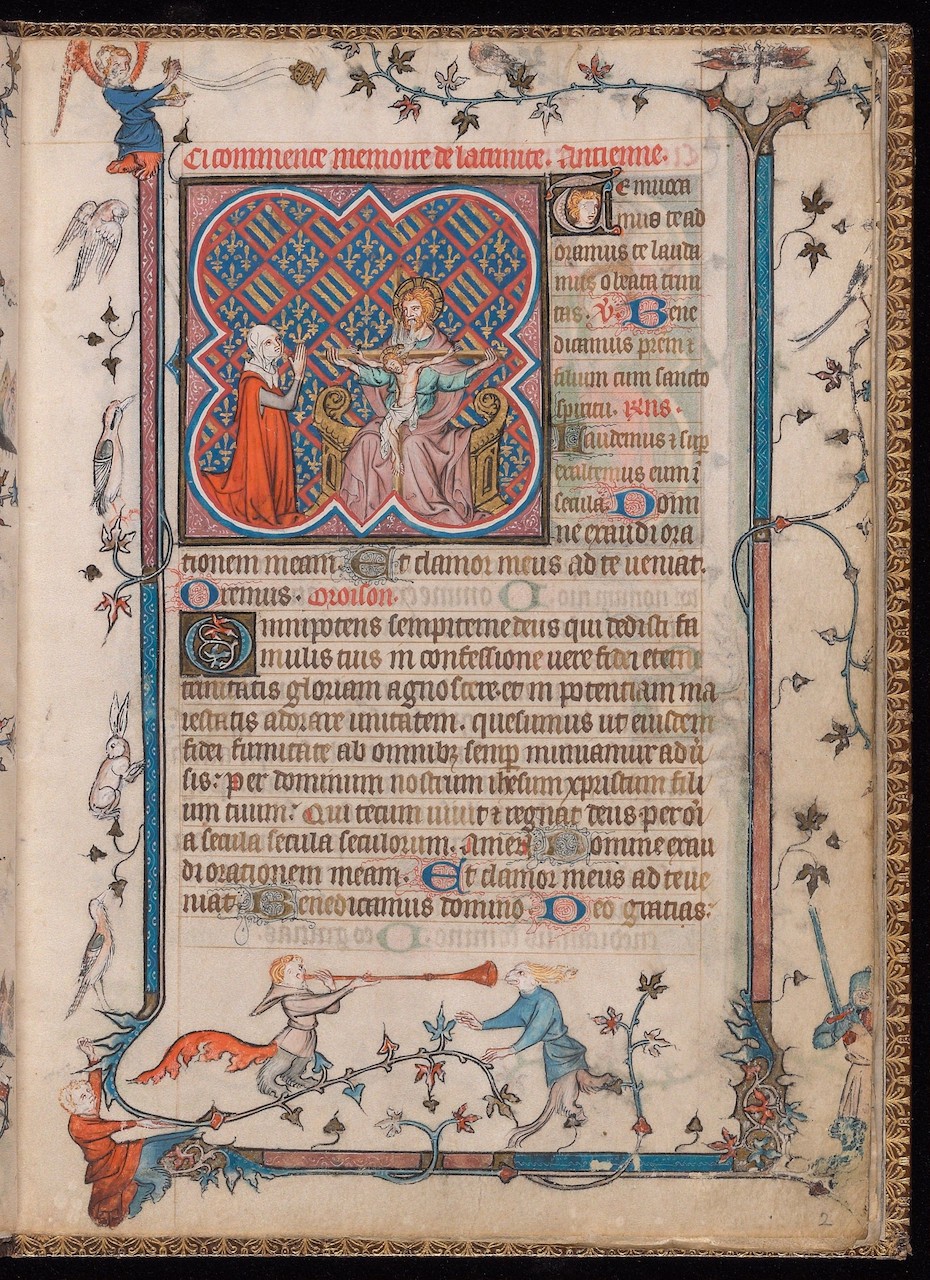 Ci commence memoire de la trinite. Antienne.
Te inuoca
mus te ad
oramus te lauda
mus o beata trini
tas. V. Bene
dicamus prem ⁊
filium cum sancto
spiritu. R̃ns.
Laudemus ⁊ sup
exaltemus eum ī
secula. Domi
ne exaudi ora
tionem meam. Et clamor meus ad te ueniat.
Oremus. Oroison.
Omnipotens sempiterne deus qui dedisti fa
mulis tuis in confessione uere fidei eterne
trinitatis gloriam agnoscere. et in potentiam ma
iestatis adorare unitatem. quesumus ut eiusdem
fidei firmitate ab omnibꝫ semp muniamur aduˀ
sis: Per dominum nostrum ihesum xpristum fili
um tuum: Qui tecum uiuit ⁊ regnat deus per oı̄
a secula secula seculorum. Amen Domine exau
di orationem meam. Et clamor meus ad te ue
niat. Benedicamus domino. Deo gratias:
2